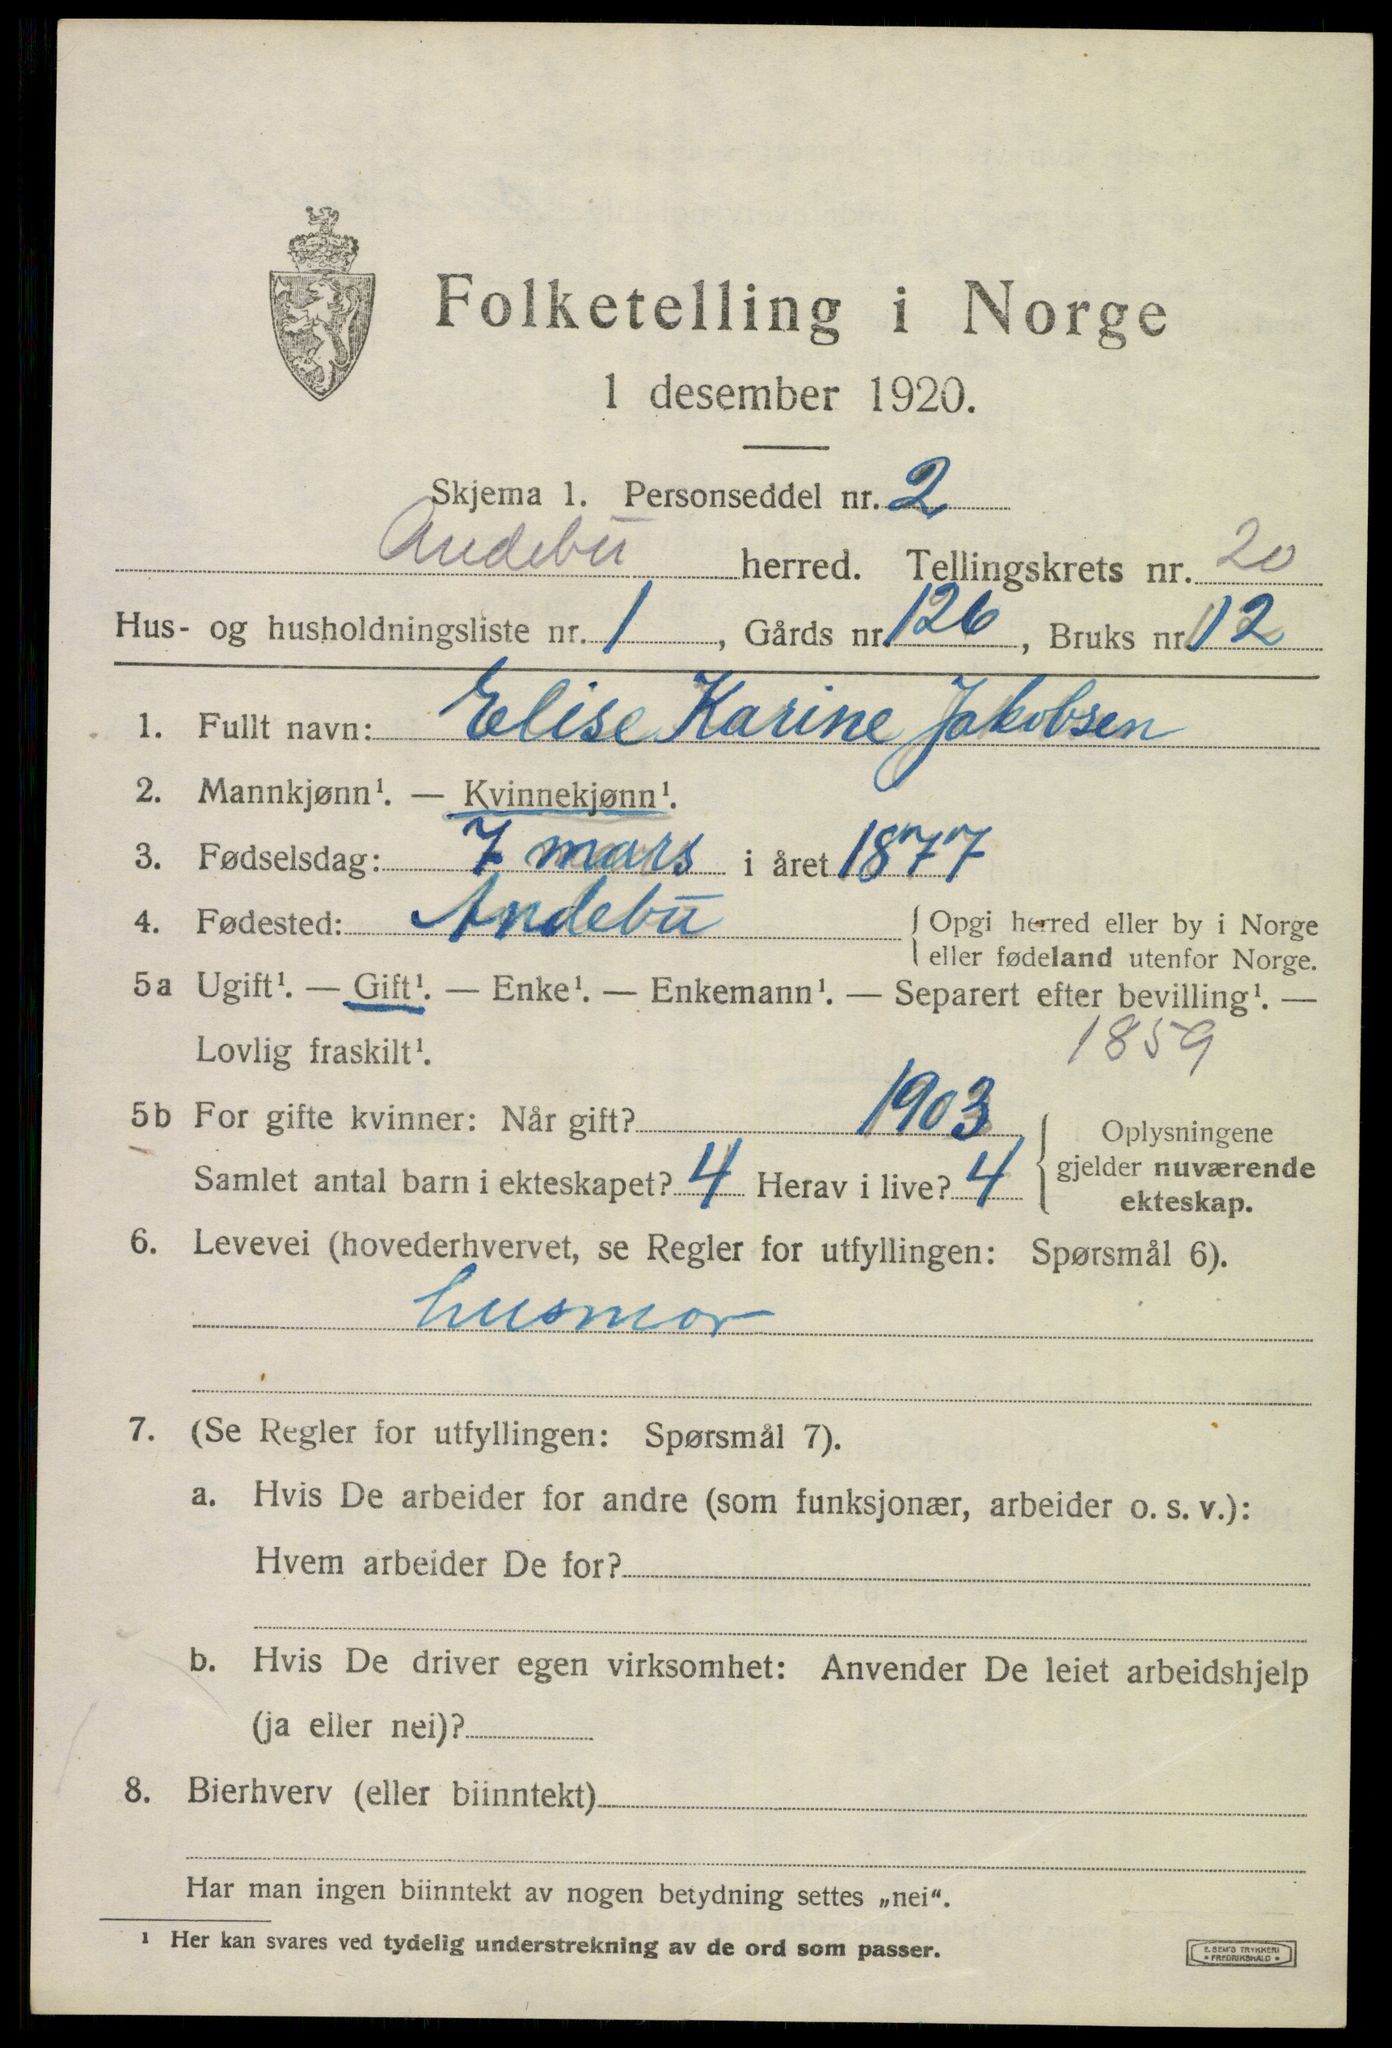 Folketelling i Norge
1 desember 1920.
Skjema 1. Personseddel nr. 2
Andebu herred. Tellingskrets nr. 20
Hus- og husholdningsliste nr. 1, Gårds nr. 126, Bruks nr. 12
1. Fullt navn: Elise Karine Jakobsen
2. Mannkjønn¹. — Kvinnekjønn¹.
3. Fødselsdag: 7 mars i året 1877
4. Fødested: Andebu { Opgi herred eller by i Norge
eller fødeland utenfor Norge.
5a Ugift¹. — Gift¹. — Enke¹. — Enkemann¹. — Separert efter bevilling¹. —
Lovlig fraskilt¹. 1859
5b For gifte kvinner: Når gift? 1903
Samlet antal barn i ekteskapet? 4 Herav i live? 4
{ Oplysningene
gjelder nuværende
ekteskap.
6. Levevei (hovederhvervet, se Regler for utfyllingen: Spørsmål 6).
husmor
7. (Se Regler for utfyllingen: Spørsmål 7).
a. Hvis De arbeider for andre (som funksjonær, arbeider o. s. v.):
Hvem arbeider De for?
b. Hvis De driver egen virksomhet: Anvender De leiet arbeidshjelp
(ja eller nei)?
8. Bierhverv (eller biinntekt)
Har man ingen biinntekt av nogen betydning settes „nei".
¹ Her kan svares ved tydelig understrekning av de ord som passer.
E. SEM'S TRYKKERI
• FREDRIKSHALD •